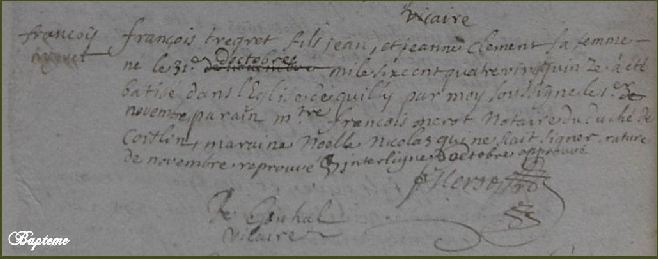 vicaire
francois
françois tregret fils jean, et jeanne Clement sa femme
ne le 31e doctobre de novembre mil sixcent quatre vingt quinze a été
batisé dans l'Eglise de quilly par moy soussigné le 1er de
novembre parain mtre françois merot Notaire du duché de
Coislin, maraine Noelle Nicolas que ne scait signer, rature
de novembre reprouvé & interligne doctobre approuvé
vicaire
Bapteme